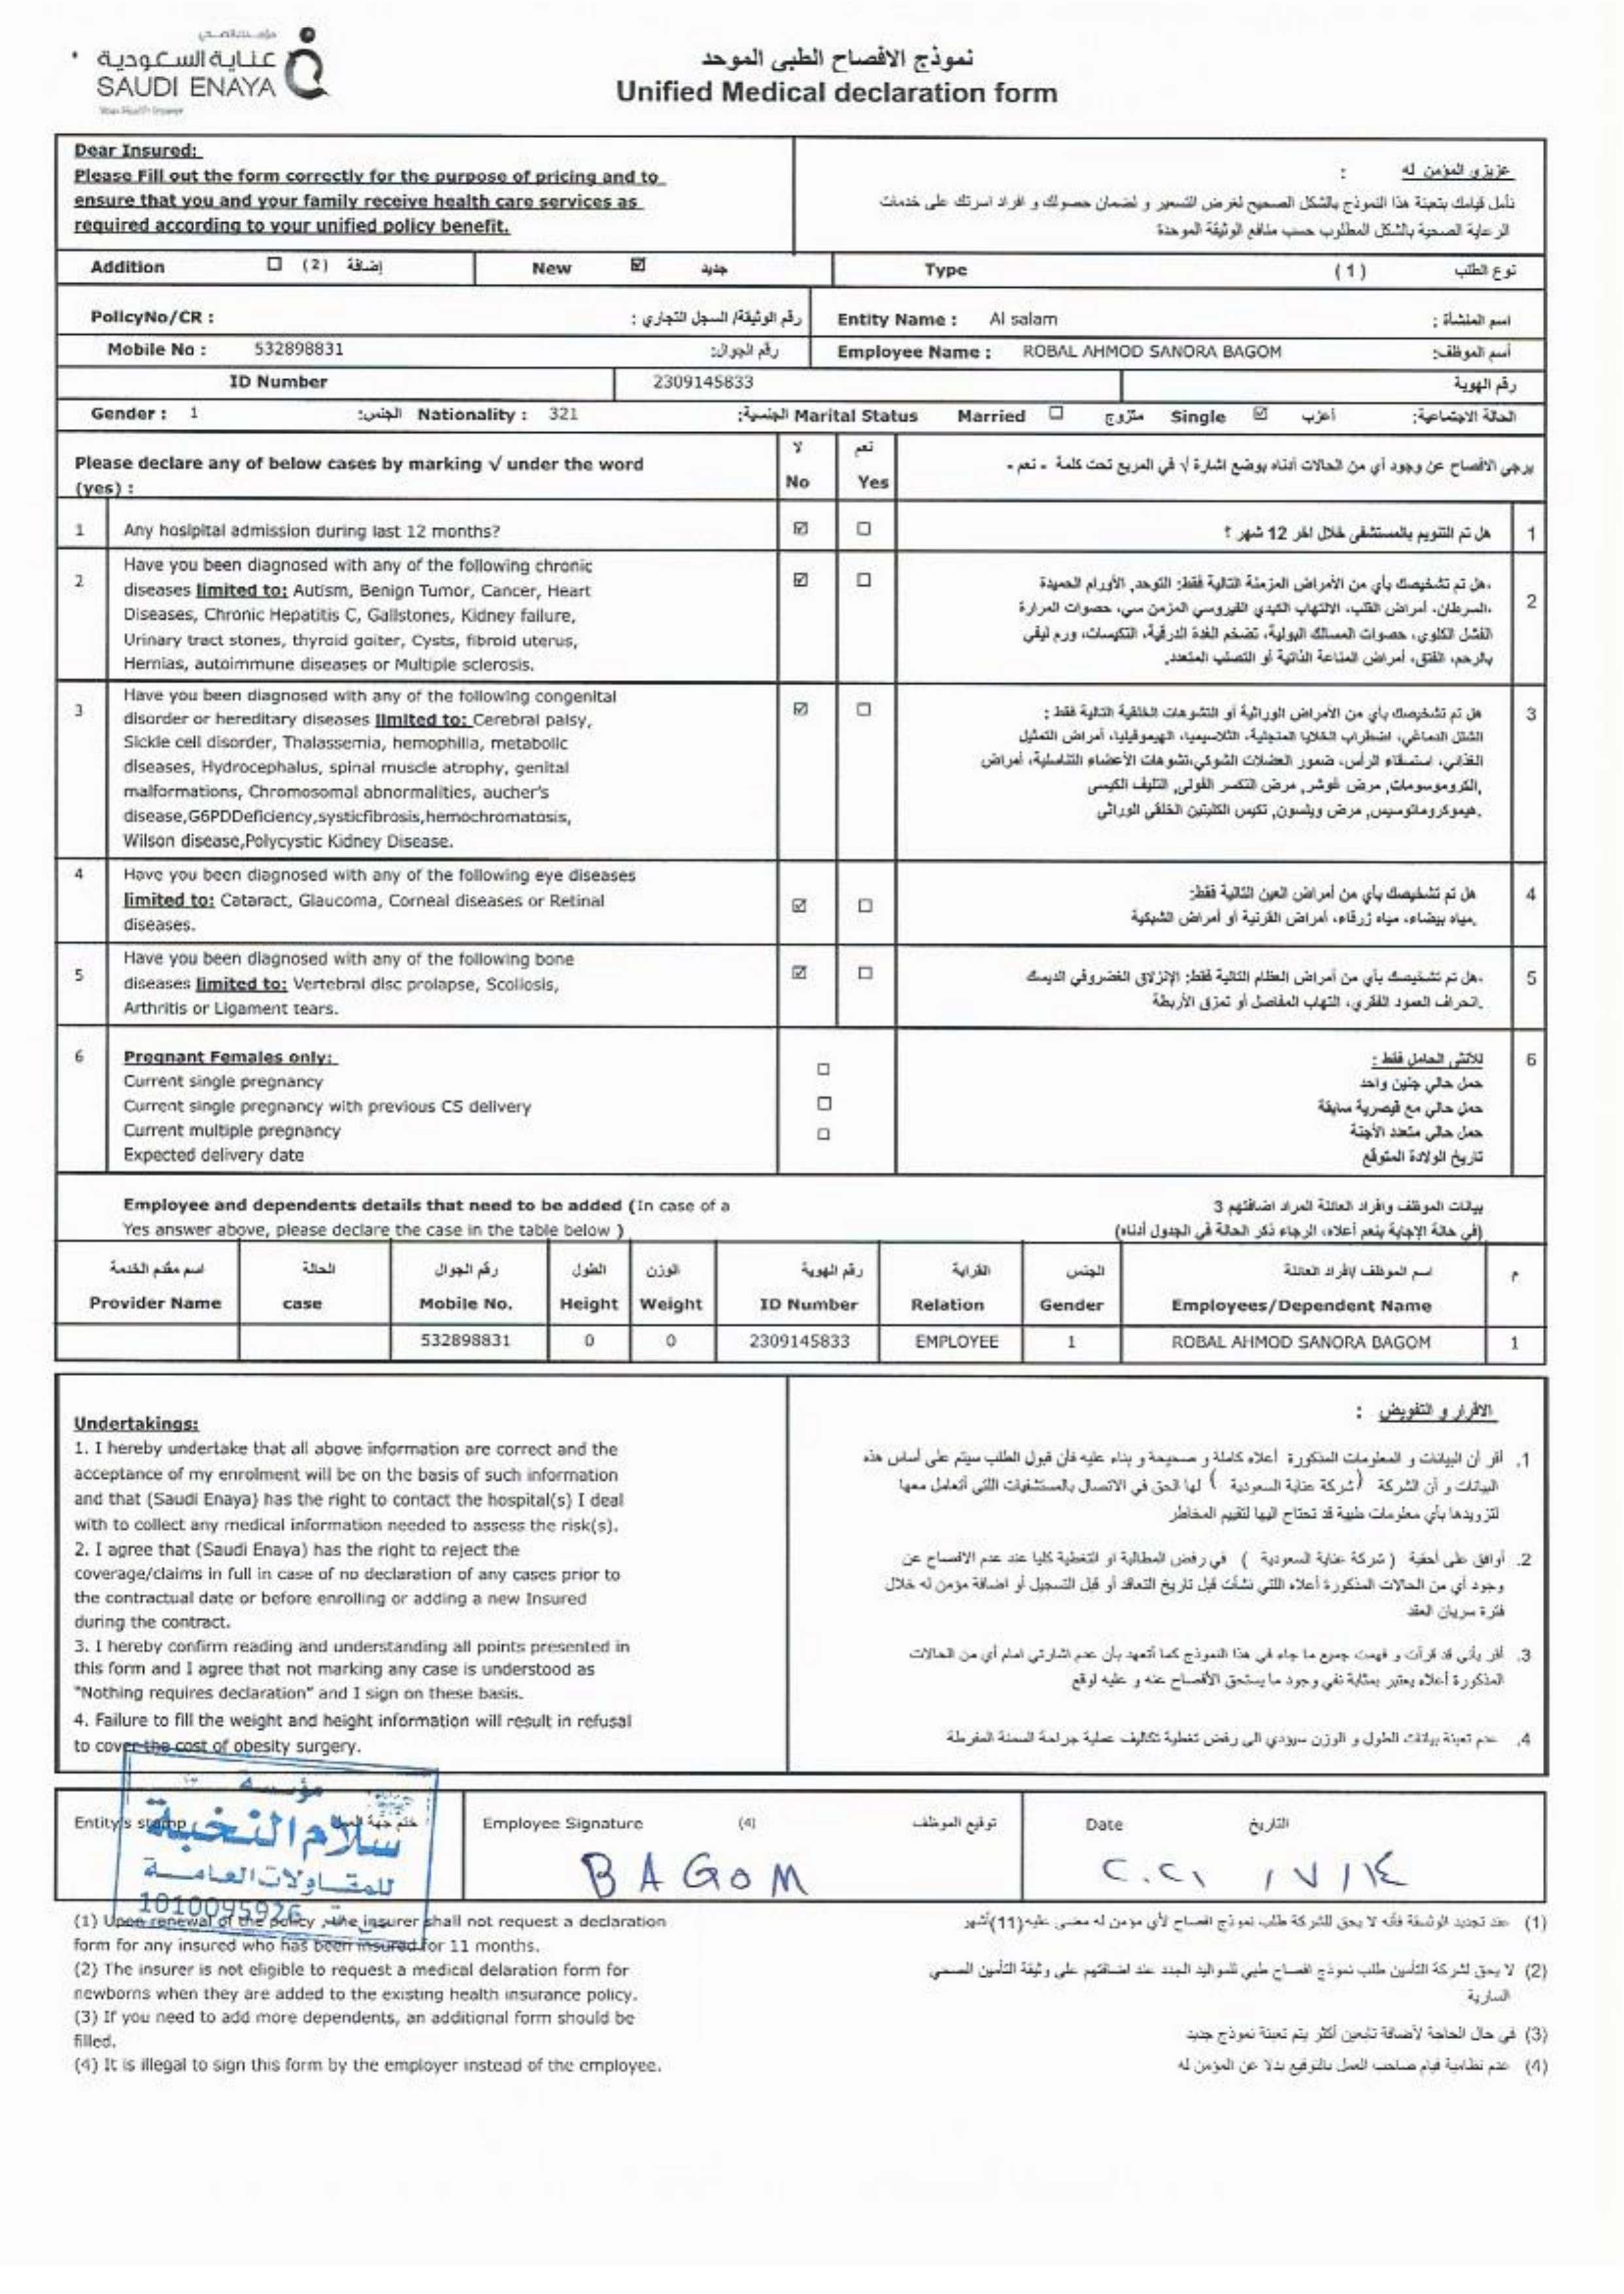 عناية السعودية
SAUDI ENAYA
نموذج الافصاح الطبي الموحد
Unified Medical declaration form
Dear Insured:
Please Fill out the form correctly for the purpose of pricing and to
ensure that you and your family receive health care services as
required according to your unified policy benefit.
عزيزي المؤمن له :
نأمل قيامك بتعبئة هذا النموذج بالشكل الصحيح لغرض التسعير و لضمان حصولك و افراد اسرتك على خدمات
الرعاية الصحية بالشكل المطلوب حسب منافع الوثيقة الموحدة
Addition ☐ (2) إضافة New ☑ جديد Type (1) نوع الطلب
PolicyNo/CR : رقم الوثيقة/ السجل التجاري : Entity Name : Al salam اسم المنشأة :
Mobile No : 532898831 رقم الجوال: Employee Name : ROBAL AHMOD SANORA BAGOM أسم الموظف:
ID Number 2309145833 رقم الهوية
Gender : 1 الجنس: Nationality : 321 الجنسية: Marital Status Married ☐ متزوج Single ☑ أعزب الحالة الاجتماعية:
Please declare any of below cases by marking √ under the word
(yes) :
لا No نعم Yes
يرجى الافصاح عن وجود أي من الحالات أدناه بوضع اشارة √ في المربع تحت كلمة - نعم -
1 Any hosipital admission during last 12 months? ☑ ☐ هل تم التنويم بالمستشفى خلال اخر 12 شهر ؟ 1
2 Have you been diagnosed with any of the following chronic
diseases limited to: Autism, Benign Tumor, Cancer, Heart
Diseases, Chronic Hepatitis C, Gallstones, Kidney failure,
Urinary tract stones, thyroid goiter, Cysts, fibroid uterus,
Hernias, autoimmune diseases or Multiple sclerosis.
☑ ☐
هل تم تشخيصك بأي من الأمراض المزمنة التالية فقط: التوحد, الأورام الحميدة، 2
السرطان، أمراض القلب، الالتهاب الكبدي الفيروسي المزمن سي، حصوات المرارة،
الفشل الكلوي، حصوات المسالك البولية، تضخم الغدة الدرقية، التكيسات، ورم ليفي
بالرحم، الفتق، أمراض المناعة الذاتية أو التصلب المتعدد.
3 Have you been diagnosed with any of the following congenital
disorder or hereditary diseases limited to: Cerebral palsy,
Sickle cell disorder, Thalassemia, hemophilia, metabolic
diseases, Hydrocephalus, spinal muscle atrophy, genital
malformations, Chromosomal abnormalities, aucher's
disease,G6PDDeficiency,systicfibrosis,hemochromatosis,
Wilson disease,Polycystic Kidney Disease.
☑ ☐
هل تم تشخيصك بأي من الأمراض الوراثية أو التشوهات الخلقية التالية فقط : 3
الشلل الدماغي، اضطراب الخلايا المنجلية، الثلاسيميا، الهيموفيليا، أمراض التمثيل
الغذائي، استسقاء الرأس، ضمور العضلات الشوكي،تشوهات الأعضاء التناسلية، أمراض
الكروموسومات, مرض غوشر, مرض التكسر الفولي, التليف الكيسي,
هيموكروماتوسيس, مرض ويلسون, تكيس الكليتين الخلقي الوراثي.
4 Have you been diagnosed with any of the following eye diseases
limited to: Cataract, Glaucoma, Corneal diseases or Retinal
diseases.
☑ ☐
هل تم تشخيصك بأي من أمراض العين التالية فقط: 4
مياه بيضاء، مياه زرقاء، أمراض القرنية أو أمراض الشبكية.
5 Have you been diagnosed with any of the following bone
diseases limited to: Vertebral disc prolapse, Scoliosis,
Arthritis or Ligament tears.
☑ ☐
هل تم تشخيصك بأي من أمراض العظام التالية فقط: الإنزلاق الغضروفي الديسك، 5
انحراف العمود الفقري، التهاب المفاصل أو تمزق الأربطة.
6 Pregnant Females only: للأنثى الحامل فقط : 6
Current single pregnancy ☐ حمل حالي جنين واحد
Current single pregnancy with previous CS delivery ☐ حمل حالي مع قيصرية سابقة
Current multiple pregnancy ☐ حمل حالي متعدد الأجنة
Expected delivery date تاريخ الولادة المتوقع
Employee and dependents details that need to be added (In case of a بيانات الموظف وافراد العائلة المراد اضافتهم 3
Yes answer above, please declare the case in the table below ) (في حالة الإجابة بنعم أعلاه، الرجاء ذكر الحالة في الجدول أدناه)
اسم مقدم الخدمة الحالة رقم الجوال الطول الوزن رقم الهوية القرابة الجنس اسم الموظف /افراد العائلة م
Provider Name case Mobile No. Height Weight ID Number Relation Gender Employees/Dependent Name
532898831 0 0 2309145833 EMPLOYEE 1 ROBAL AHMOD SANORA BAGOM 1
Undertakings:
1. I hereby undertake that all above information are correct and the
acceptance of my enrolment will be on the basis of such information
and that (Saudi Enaya) has the right to contact the hospital(s) I deal
with to collect any medical information needed to assess the risk(s).
2. I agree that (Saudi Enaya) has the right to reject the
coverage/claims in full in case of no declaration of any cases prior to
the contractual date or before enrolling or adding a new Insured
during the contract.
3. I hereby confirm reading and understanding all points presented in
this form and I agree that not marking any case is understood as
"Nothing requires declaration" and I sign on these basis.
4. Failure to fill the weight and height information will result in refusal
to cover the cost of obesity surgery.
الاقرار و التفويض :
1. أقر أن البيانات و المعلومات المذكورة أعلاه كاملة و صحيحة و بناء عليه فأن قبول الطلب سيتم على أساس هذه
البيانات و أن الشركة (شركة عناية السعودية ) لها الحق في الاتصال بالمستشفيات اللتي أتعامل معها
لتزويدها بأي معلومات طبية قد تحتاج اليها لتقييم المخاطر
2. أوافق على أحقية ( شركة عناية السعودية ) في رفض المطالبة او التغطية كليا عند عدم الافصاح عن
وجود أي من الحالات المذكورة أعلاه اللتي نشأت قبل تاريخ التعاقد أو قبل التسجيل أو اضافة مؤمن له خلال
فترة سريان العقد
3. أقر بأني قد قرأت و فهمت جميع ما جاء في هذا النموذج كما أتعهد بأن عدم اشارتي امام أي من الحالات
المذكورة أعلاه يعتبر بمثابة نفي وجود ما يستحق الأفصاح عنه و عليه اوقع
4. عدم تعبئة بيانات الطول و الوزن سيؤدي الى رفض تغطية تكاليف عملية جراحة السمنة المفرطة
Entity's stamp ختم جهة العمل Employee Signature (4) توقيع الموظف Date التاريخ
مؤسسة
سلام النخبة
للمقاولات العامة
1010095926
BAGOM
٢٠٢١ / ٧ / ١٤
(1) Upon renewal of the policy , the insurer shall not request a declaration
form for any insured who has been insured for 11 months.
(2) The insurer is not eligible to request a medical delaration form for
newborns when they are added to the existing health insurance policy.
(3) If you need to add more dependents, an additional form should be
filled.
(4) It is illegal to sign this form by the employer instead of the employee.
(1) عند تجديد الوثيقة فأنه لا يحق للشركة طلب نموذج افصاح لأي مؤمن له مضى عليه(11)أشهر
(2) لا يحق لشركة التأمين طلب نموذج افصاح طبي للمواليد الجدد عند اضافتهم على وثيقة التأمين الصحي
السارية
(3) في حال الحاجة لأضافة تابعين أكثر يتم تعبئة نموذج جديد
(4) عدم نظامية قيام صاحب العمل بالتوقيع بدلا عن المؤمن له